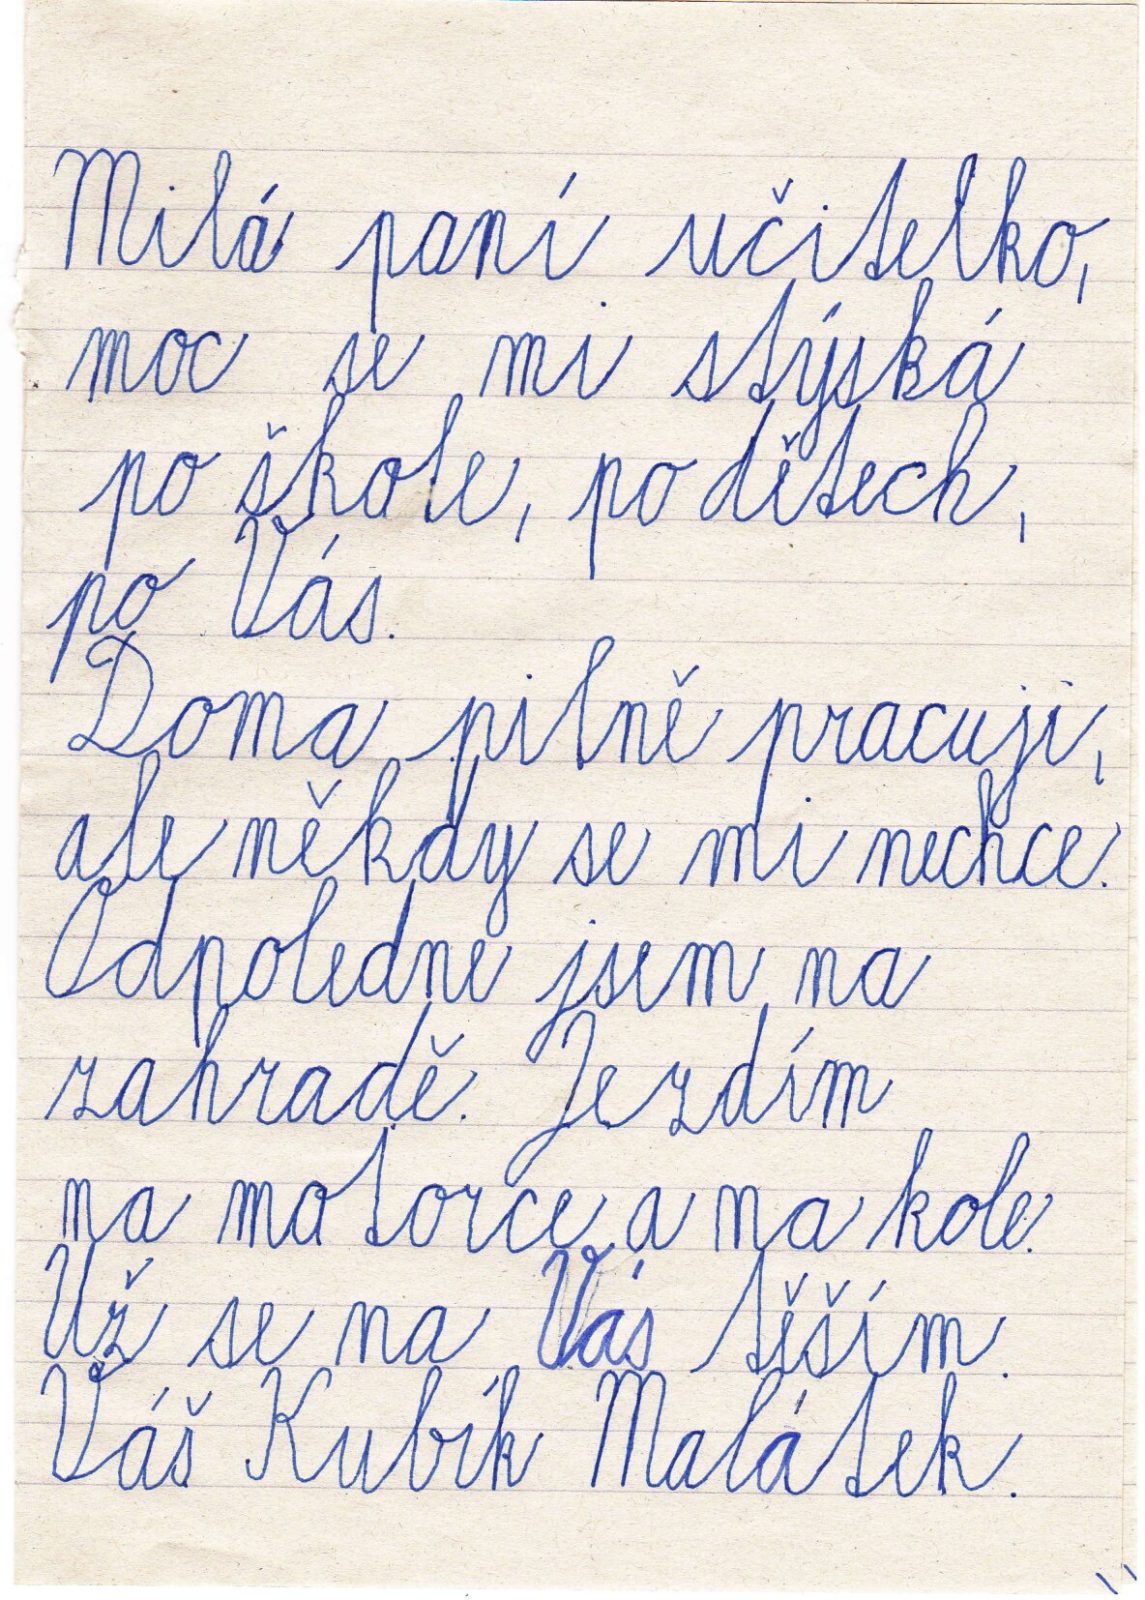 Milá paní učitelko,
moc se mi stýská
po škole, po dětech,
po Vás.
Doma pilně pracuji,
ale někdy se mi nechce.
Odpoledne jsem na
zahradě. Jezdím
na motorce a na kole.
Už se na Vás těším.
Váš Kubík Malátek.